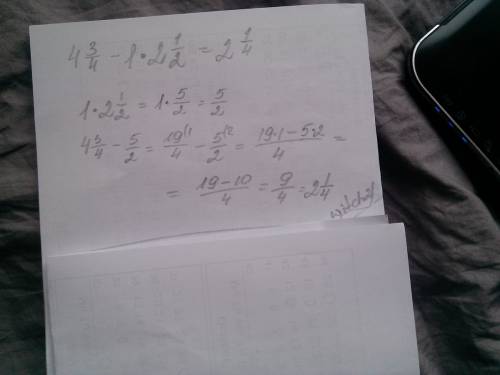 4 3/4 - 1 · 2 1/2 = 2 1/4
1 · 2 1/2 = 1 · 5/2 = 5/2
4 3/4 - 5/2 = 19/4 (1 - 5/2 (2 = (19·1-5·2)/4 =
= (19-10)/4 = 9/4 = 2 1/4